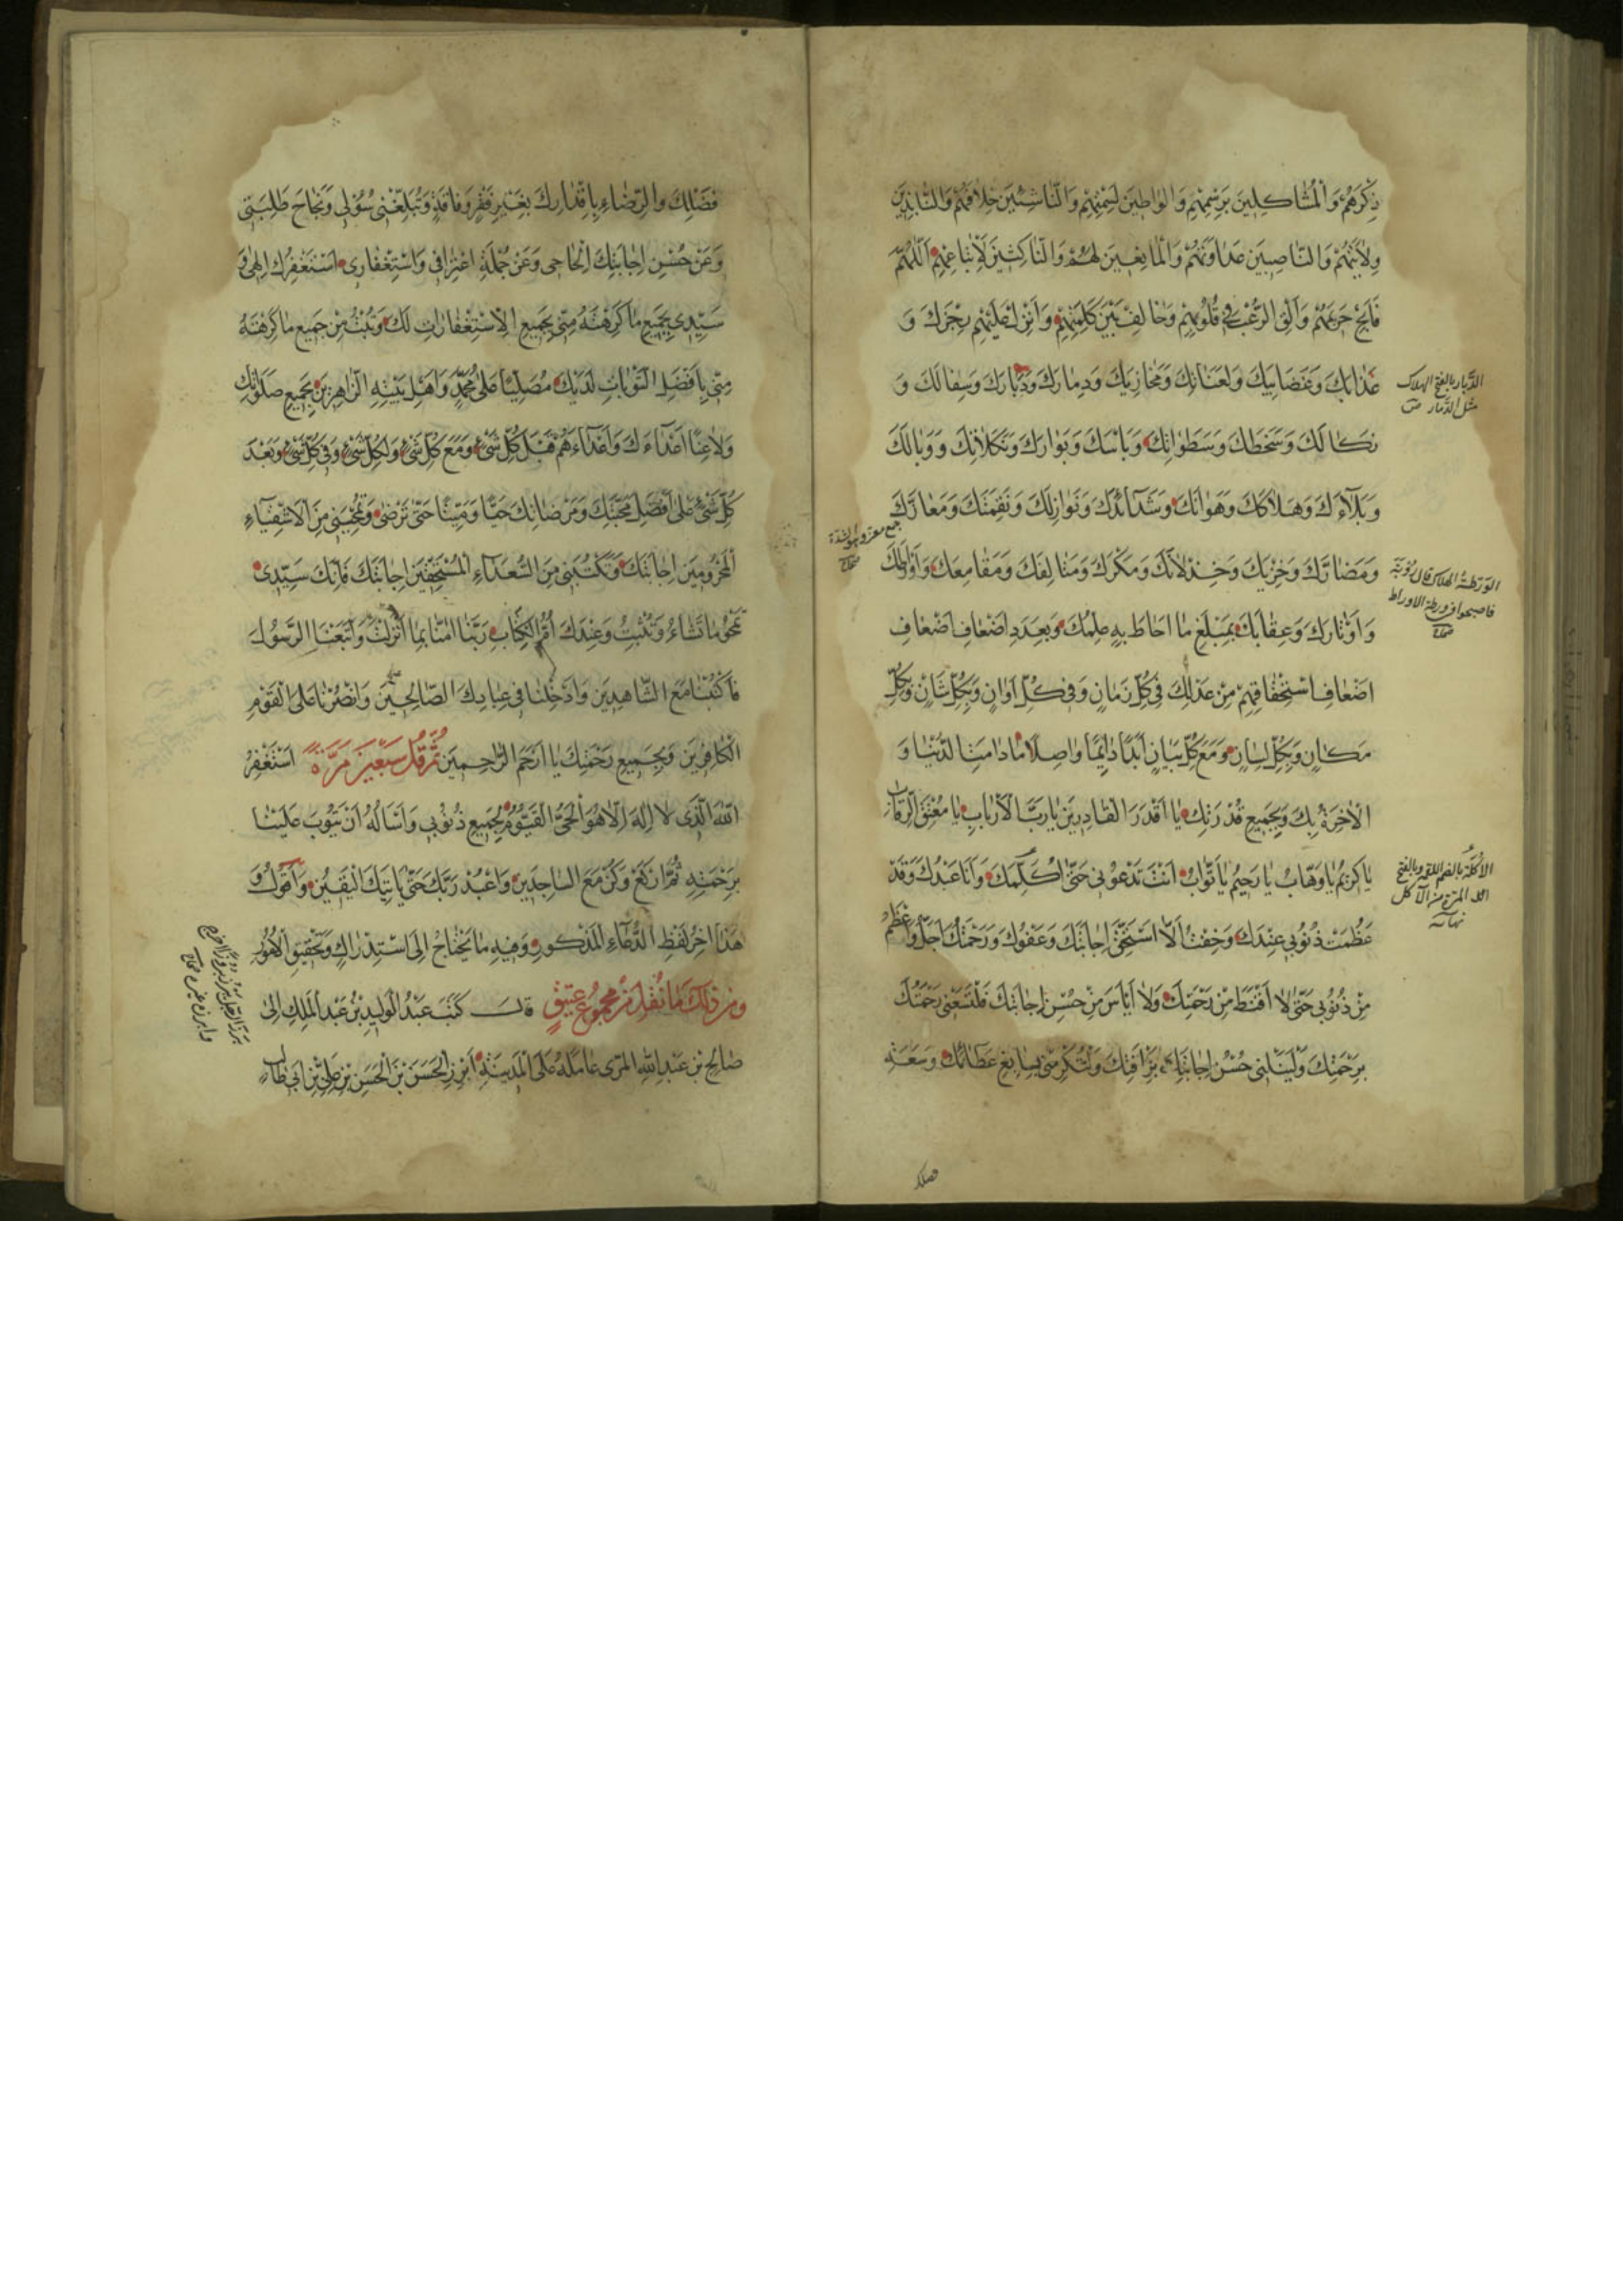 ذِكْرَهُمْ وَالْمُشَاكِلِينَ بِرَسْمِهِمْ وَالْوَاطِينَ لِسَمْتِهِمْ وَالنَّاشِئِينَ خِلَافَهُمْ وَالنَّابِذِينَ
وِلَايَتَهُمْ وَالنَّاصِبِينَ عَدَاوَتَهُمْ وَالْمَانِعِينَ لَهُمْ وَالنَّاكِثِينَ لِاتِّبَاعِهِمْ اَللّٰهُمَّ
فَاَبِحْ حَرِيمَهُمْ وَاَلْقِ الرُّعْبَ فِي قُلُوبِهِمْ وَخَالِفْ بَيْنَ كَلِمَتِهِمْ وَاَنْزِلْ عَلَيْهِمْ رِجْزَكَ وَ
عَذَابَكَ وَغَضَايِبَكَ وَلَعَنَاتِكَ وَمَخَازِيَكَ وَدِمَارَكَ وَدَبَارَكَ وَسِفَالَكَ وَ
نَكَالَكَ وَسَخَطَكَ وَسَطَوَاتِكَ وَبَاْسَكَ وَبَوَارَكَ وَنَكَلَاتِكَ وَوَبَالَكَ
وَبَلَآءَكَ وَهَلَاكَكَ وَهَوَانَكَ وَشَدَآئِدَكَ وَنَوَازِلَكَ وَنَقِمَتَكَ وَمَعَارَّكَ
وَمَضَارَّكَ وَخِزْيَكَ وَخِذْلَانَكَ وَمَكْرَكَ وَمَتَالِفَكَ وَمَقَامِعَكَ
وَاَوْتَارَكَ وَعِقَابَكَ بِمَبْلَغِ مَا اَحَاطَ بِهِ عِلْمُكَ وَبِعَدَدِ اَضْعَافِ اَضْعَافِ
اَضْعَافِ اسْتِحْقَاقِهِمْ مِنْ عَدْلِكَ فِي كُلِّ زَمَانٍ وَفِي كُلِّ اَوَانٍ وَبِكُلِّ شَاْنٍ وَبِكُلِّ
مَكَانٍ وَبِكُلِّ لِسَانٍ وَمَعَ كُلِّ بَيَانٍ اَبَدًا دَائِمًا وَاصِلًا مَا دَامَتِ الدُّنْيَا وَ
الْاٰخِرَةُ بِكَ وَبِجَمِيعِ قُدْرَتِكَ يَا اَقْدَرَ الْقَادِرِينَ يَا رَبَّ الْاَرْبَابِ يَا مُعْتِقَ الرِّقَابِ
يَا كَرِيمُ يَا وَهَّابُ يَا رَحِيمُ يَا تَوَّابُ اَنْتَ تَدْعُونِي حَتَّى اُكَلِّمَكَ وَاَنَا عَبْدُكَ وَقَدْ
عَظُمَتْ ذُنُوبِي عِنْدَكَ وَخِفْتُ اَلَّا اَسْتَحِقَّ اِجَابَتَكَ وَعَفْوُكَ وَرَحْمَتُكَ اَجَلُّ وَاَعْظَمُ
مِنْ ذُنُوبِي حَتَّى لَا اَقْنَطَ مِنْ رَحْمَتِكَ وَلَا اَيْاَسَ مِنْ حُسْنِ اِجَابَتِكَ فَلْتَسَعْنِي رَحْمَتُكَ
بِرَحْمَتِكَ وَلْيَنَلْنِي حُسْنُ اِجَابَتِكَ بِرَاْفَتِكَ سَابِغِ عَطَائِكَ وَسَعَةِ
الدَّبَار بالفتح الهلاك
مثل الدمار ص
الورطة الهلاك قال رؤبة
فاصبحوا في ورطة الاوراط
صحاح
الاكلة بالضم اللقمة وبالفتح
المرة من الاكل
نهاية
فضلك
فَضْلِكَ وَالرِّضَاءِ بِاَقْدَارِكَ بِغَيْرِ فَقْرٍ وَفَاقَةٍ وَتُبَلِّغْنِي سُؤْلِي وَنَجَاحَ طَلِبَتِي
وَعَنْ حُسْنِ اِجَابَتِكَ اِلْحَاحِي وَعَنْ جُمْلَةِ اعْتِرَافِي وَاسْتِغْفَارِي اَسْتَغْفِرُكَ اِلٰهِي وَ
سَيِّدِي بِجَمِيعِ مَا كَرِهْتَهُ مِنِّي بِجَمِيعِ الْاِسْتِغْفَارَاتِ لَكَ وَتُبْتُ مِنْ جَمِيعِ مَا كَرِهْتَهُ
مِنِّي بِاَفْضَلِ التَّوْبَاتِ لَدَيْكَ مُصَلِّيًا عَلَى مُحَمَّدٍ وَاَهْلِ بَيْتِهِ الزَّاهِرِينَ بِجَمِيعِ صَلَوَاتِكَ
وَلَاعِنًا اَعْدَآءَكَ وَاَعْدَآءَهُمْ قَبْلَ كُلِّ شَيْءٍ وَمَعَ كُلِّ شَيْءٍ وَلِكُلِّ شَيْءٍ وَفِي كُلِّ شَيْءٍ وَبَعْدَ
كُلِّ شَيْءٍ عَلَى اَفْضَلِ مَحَبَّتِكَ وَمَرْضَاتِكَ حَيًّا وَمَيِّتًا حَتَّى تَرْضَى وَتَمْحُيَنِي مِنَ الْاَشْقِيَآءِ
الْمَحْرُومِينَ اِجَابَتَكَ وَتَكْتُبَنِي مِنَ السُّعَدَآءِ الْمُسْتَحِقِّينَ اِجَابَتَكَ فَاِنَّكَ سَيِّدِي
تَمْحُو مَا تَشَاءُ وَتُثْبِتُ وَعِنْدَكَ اُمُّ الْكِتَابِ رَبَّنَا اٰمَنَّا بِمَا اَنْزَلْتَ وَاتَّبَعْنَا الرَّسُولَ
فَاكْتُبْنَا مَعَ الشَّاهِدِينَ وَاَدْخِلْنَا فِي عِبَادِكَ الصَّالِحِينَ وَانْصُرْنَا عَلَى الْقَوْمِ
الْكَافِرِينَ وَبِجَمِيعِ رَحْمَتِكَ يَا اَرْحَمَ الرَّاحِمِينَ ثُمَّ قُلْ سَبْعِينَ مَرَّةً اَسْتَغْفِرُ
اللّٰهَ الَّذِي لَا اِلٰهَ اِلَّا هُوَ الْحَيُّ الْقَيُّومُ لِجَمِيعِ ذُنُوبِي وَاَسْاَلُهُ اَنْ يَتُوبَ عَلَيْنَا
بِرَحْمَتِهِ ثُمَّ ارْكَعْ وَكُنْ مَعَ السَّاجِدِينَ وَاعْبُدْ رَبَّكَ حَتَّى يَاْتِيَكَ الْيَقِينُ وَاَقُولُ وَ
هَذَا اٰخِرُ لَفْظِ الدُّعَآءِ الْمَذْكُورِ وَفِيهِ مَا يَحْتَاجُ اِلَى اسْتِدْرَاكٍ وَتَحْقِيقِ الْاُمُورِ
وَمِنْ ذٰلِكَ مَا نُقِلَ مِنْ مَجْمُوعٍ عَتِيقٍ قَالَ كَتَبَ عَبْدُ الْوَلِيدِ بْنُ عَبْدِ الْمَلِكِ اِلَى
صَالِحِ بْنِ عَبْدِ اللّٰهِ الْمُرِّي عَامِلِهِ عَلَى الْمَدِينَةِ اَبْرِزِ الْحَسَنَ بْنَ الْحَسَنِ بْنِ عَلِيِّ بْنِ اَبِي طَالِبٍ